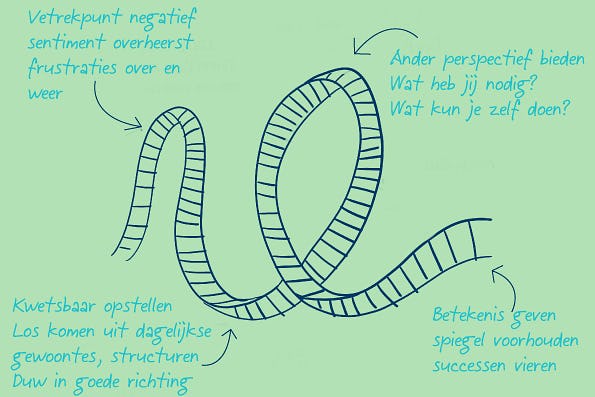 Vetrekpunt negatief
sentiment overheerst
frustraties over en
weer
Ander perspectief bieden
Wat heb jij nodig?
Wat kun je zelf doen?
Kwetsbaar opstellen
Los komen uit dagelijkse
gewoontes, structuren
Duw in goede richting
Betekenis geven
spiegel voorhouden
successen vieren